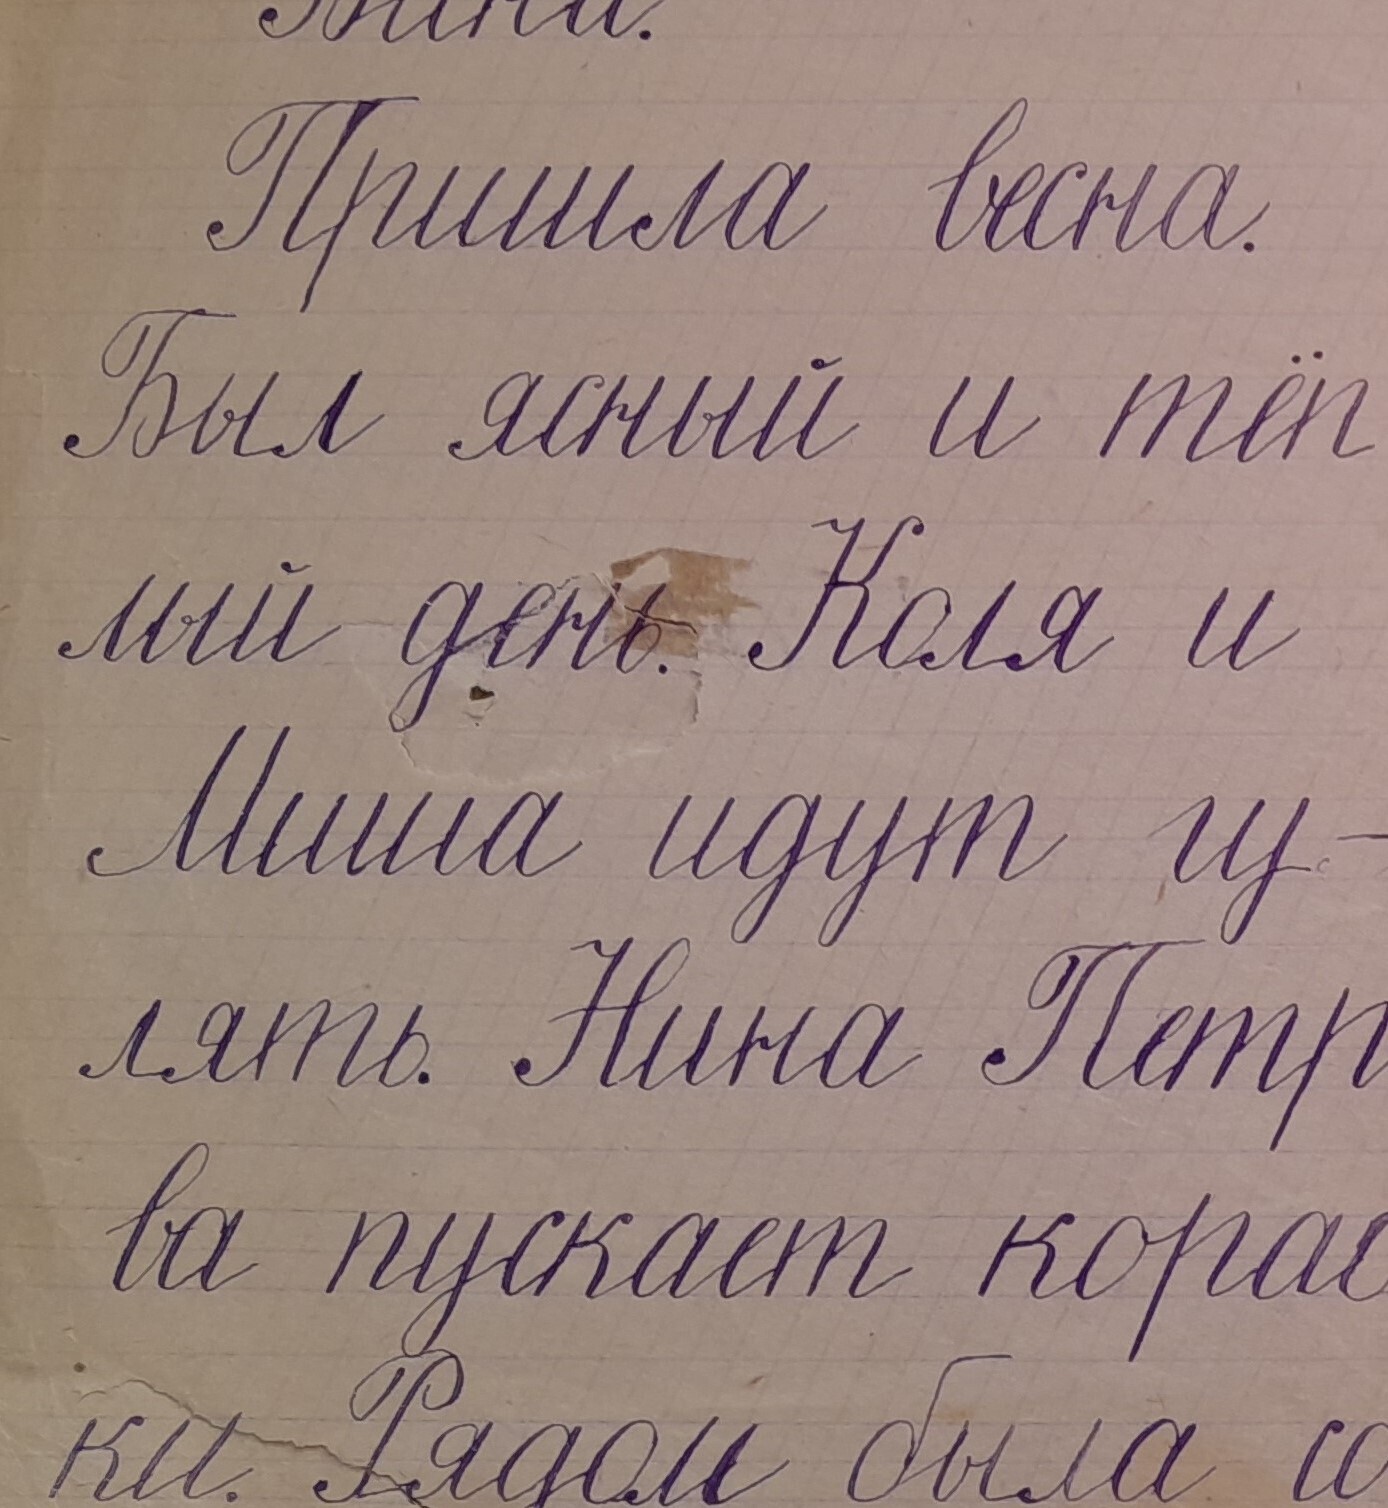 Пришла весна.
Был ясный и тёп
лый день. Коля и
Миша идут гу-
лять. Нина Петр
ва пускает кораб
ки. Рядом была со